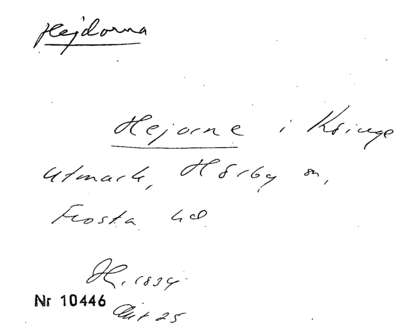 Hejdorna
Hejorne i Kringe
utmark, Hörby sn,
Frosta hd
H. 1834
Akt 25
Nr 10446